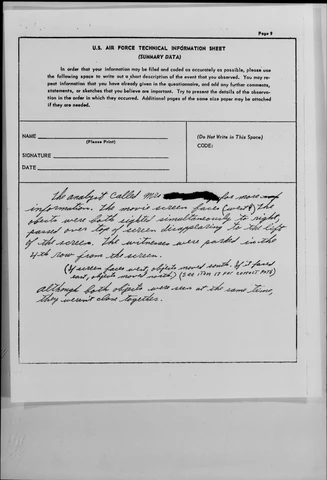 Page 9
U.S. AIR FORCE TECHNICAL INFORMATION SHEET
(SUMMARY DATA)
In order that your information may be filed and coded as accurately as possible, please use
the following space to write out a short description of the event that you observed. You may re-
peat information that you have already given in the questionnaire, and add any further comments,
statements, or sketches that you believe are important. Try to present the details of the observa-
tion in the order in which they occurred. Additional pages of the same size paper may be attached
if they are needed.
NAME
(Please Print)
(Do Not Write in This Space)
CODE:
SIGNATURE
DATE
The analyst called Mrs. for more
information. The movie screen faces (west?) The
objects were both sighted simultaneously to right,
passed over top of screen disappearing to the left
of the screen. The witnesses were parked in the
4th row from the screen.
(If screen faces west, objects moved south. If it faced
east, objects moved north) (SEE ITEM 15 FOR CORRECT PATH)
Although both objects were seen at the same time,
they weren't close together.